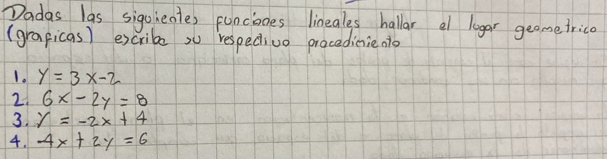 Dadas las siguientes funciones lineales hallar el lugar geometrico
(graficas) escriba su respectivo procedimiento
1. y = 3x-2
2. 6x - 2y = 8
3. y = -2x + 4
4. -4x + 2y = 6